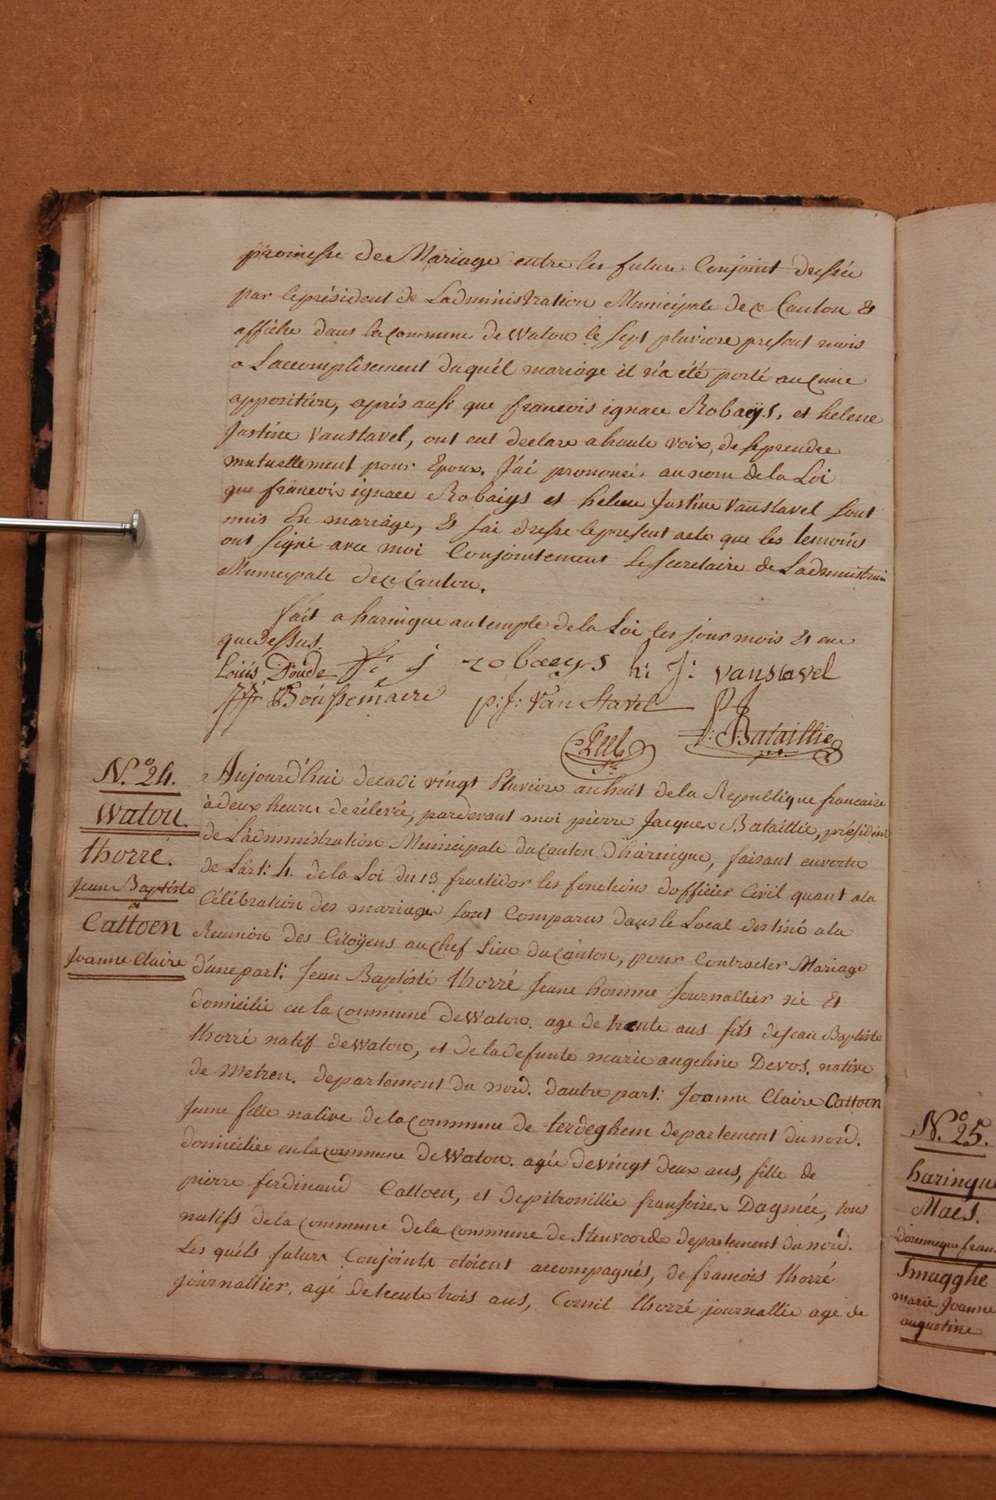 promesse de Mariage entre les futurs Conjoint dressée
par le président de Ladministration Municipale de ce Canton Et
affiche dans la commune de Watou le sept pluviose present mois
a Laccomplissement duquél mariage il n'a été porté aucune
opposition, aprés ausi que francois ignace Robaeys, et helene
Justine Vanstavel, ont eut declare a haute voix, de se prendre
mutuellement pour Epoux. J'ai prononcé au nom de la Loi
que francois ignace Robaeys et helene Justine Vanstavel sont
unis En mariage, Et jai dresse le present acte que les temoins
ont signé avec moi Conjointement Le secretaire de Ladministrati
Municipale de ce Canton.
fait a haringue au temple de la Loi les jour mois Et an
que dessus.
Louis Doude f: j robaeys h: J: vanstavel
Boussemaere p: J: Van Stavel
P: J: Bataillie
N.o 24.
Watou
thorré.
Jean Baptiste
&
Cattoen
Joanne Claire
Aujourd'hui decadi vingt Pluviose an huit de la Republique francaise
à deux heures de rélevé, pardevant moi pierre Jacques Bataillie, président
de L'administration Municipale du canton d'haringue, faisant en vertu
de L'art: 4. de la Loi du 13 fructidor les fonctions dofficier Civil quant a la
Célébration des mariages sont Comparus dans le Local destiné a la
Reunion des Citoÿens au chef Lieu du Canton, pour Contracter Mariage
d'une part: Jean Baptiste thorré Jeune homme Journallier né Et
domicilié en la commune de Watou. age de trente ans fils de Jean Baptiste
thorré natif de Watou, et de la defunte marie angeline Devos. native
de Metren. departement du nord. dautre part: Joanne Claire Cattoen
Jeune fille native de la commune de terdeghem departement du nord.
domiciliée en la commune de Watou. agée de vingt deux ans, fille de
pierre ferdinand Cattoen, et de pitronillie franfoise Dagmée, tous
natifs de la commune de la commune de Stenvoorde departement du nord.
Les quéls futurs Conjoints étoient accompagnés, de francois thorré
Journallier, agé de trente trois ans, Cornil thorré journallie age de
N.o 25.
haringue
Maés.
Dominique fran
Smagghe
marie Joanne
augustine